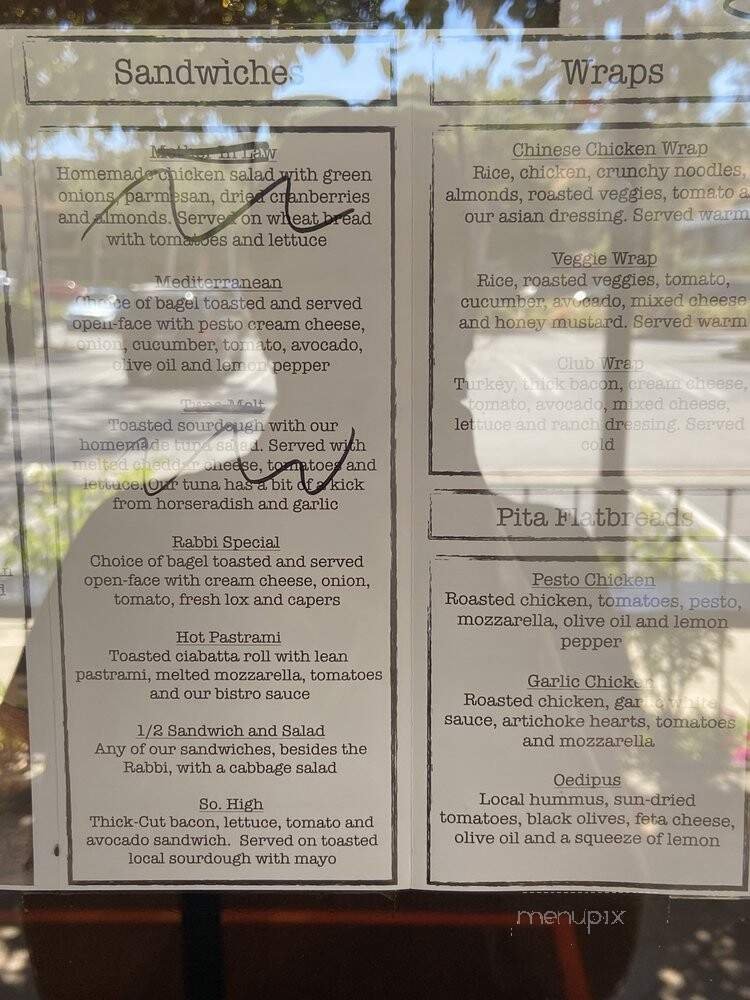 Sandwiches
Mother In Law
Homemade chicken salad with green
onions, parmesan, dried cranberries
and almonds. Served on wheat bread
with tomatoes and lettuce
Mediterranean
Choice of bagel toasted and served
open-face with pesto cream cheese,
onion, cucumber, tomato, avocado,
olive oil and lemon pepper
Tuna Melt
Toasted sourdough with our
homemade tuna salad. Served with
melted cheddar cheese, tomatoes and
lettuce. Our tuna has a bit of a kick
from horseradish and garlic
Rabbi Special
Choice of bagel toasted and served
open-face with cream cheese, onion,
tomato, fresh lox and capers
Hot Pastrami
Toasted ciabatta roll with lean
pastrami, melted mozzarella, tomatoes
and our bistro sauce
1/2 Sandwich and Salad
Any of our sandwiches, besides the
Rabbi, with a cabbage salad
So. High
Thick-Cut bacon, lettuce, tomato and
avocado sandwich. Served on toasted
local sourdough with mayo
Wraps
Chinese Chicken Wrap
Rice, chicken, crunchy noodles,
almonds, roasted veggies, tomato
our asian dressing. Served warm
Veggie Wrap
Rice, roasted veggies, tomato,
cucumber, avocado, mixed cheese
and honey mustard. Served warm
Club Wrap
Turkey, thick bacon, cream cheese,
tomato, avocado, mixed cheese,
lettuce and ranch dressing. Served
cold
Pita Flatbreads
Pesto Chicken
Roasted chicken, tomatoes, pesto,
mozzarella, olive oil and lemon
pepper
Garlic Chicken
Roasted chicken, garlic white
sauce, artichoke hearts, tomatoes
and mozzarella
Oedipus
Local hummus, sun-dried
tomatoes, black olives, feta cheese,
olive oil and a squeeze of lemon
menupix